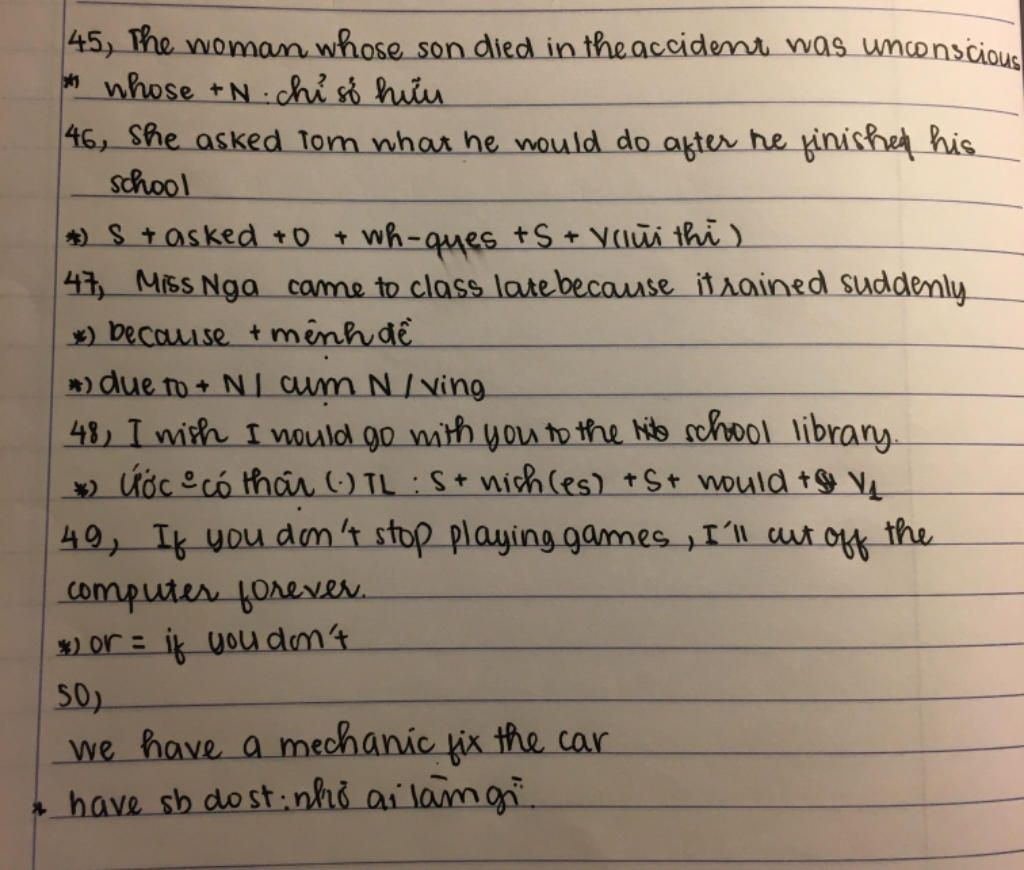 45, The woman whose son died in the accident was unconscious
*) whose + N : chỉ sở hữu
46, She asked Tom what he would do after he finished his
school
*) S + asked + O + wh-ques + S + V(lùi thì)
47, Miss Nga came to class late because it rained suddenly
*) because + mệnh đề
*) due to + N / cụm N / Ving
48, I wish I would go with you to the school library.
*) Ước có thân (.) TL : S + wich(es) + S + would + V1
49, If you don't stop playing games, I'll cut off the
computer forever.
*) or = if you don't
50,
we have a mechanic fix the car
* have sb do st : nhờ ai làm gì.